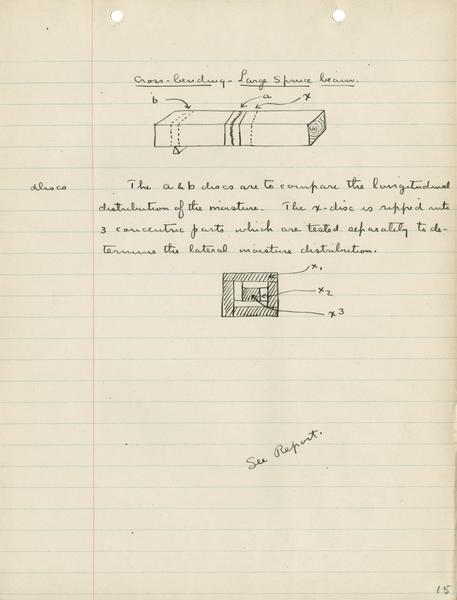 Cross-bending - Large Spruce beam.
b a x
Discs The a & b discs are to compare the longitudinal
distribution of the moisture. The x-disc is ripped into
3 concentric parts which are tested separately to de-
termine the lateral moisture distribution.
x1
x2
x3
See Report.
15